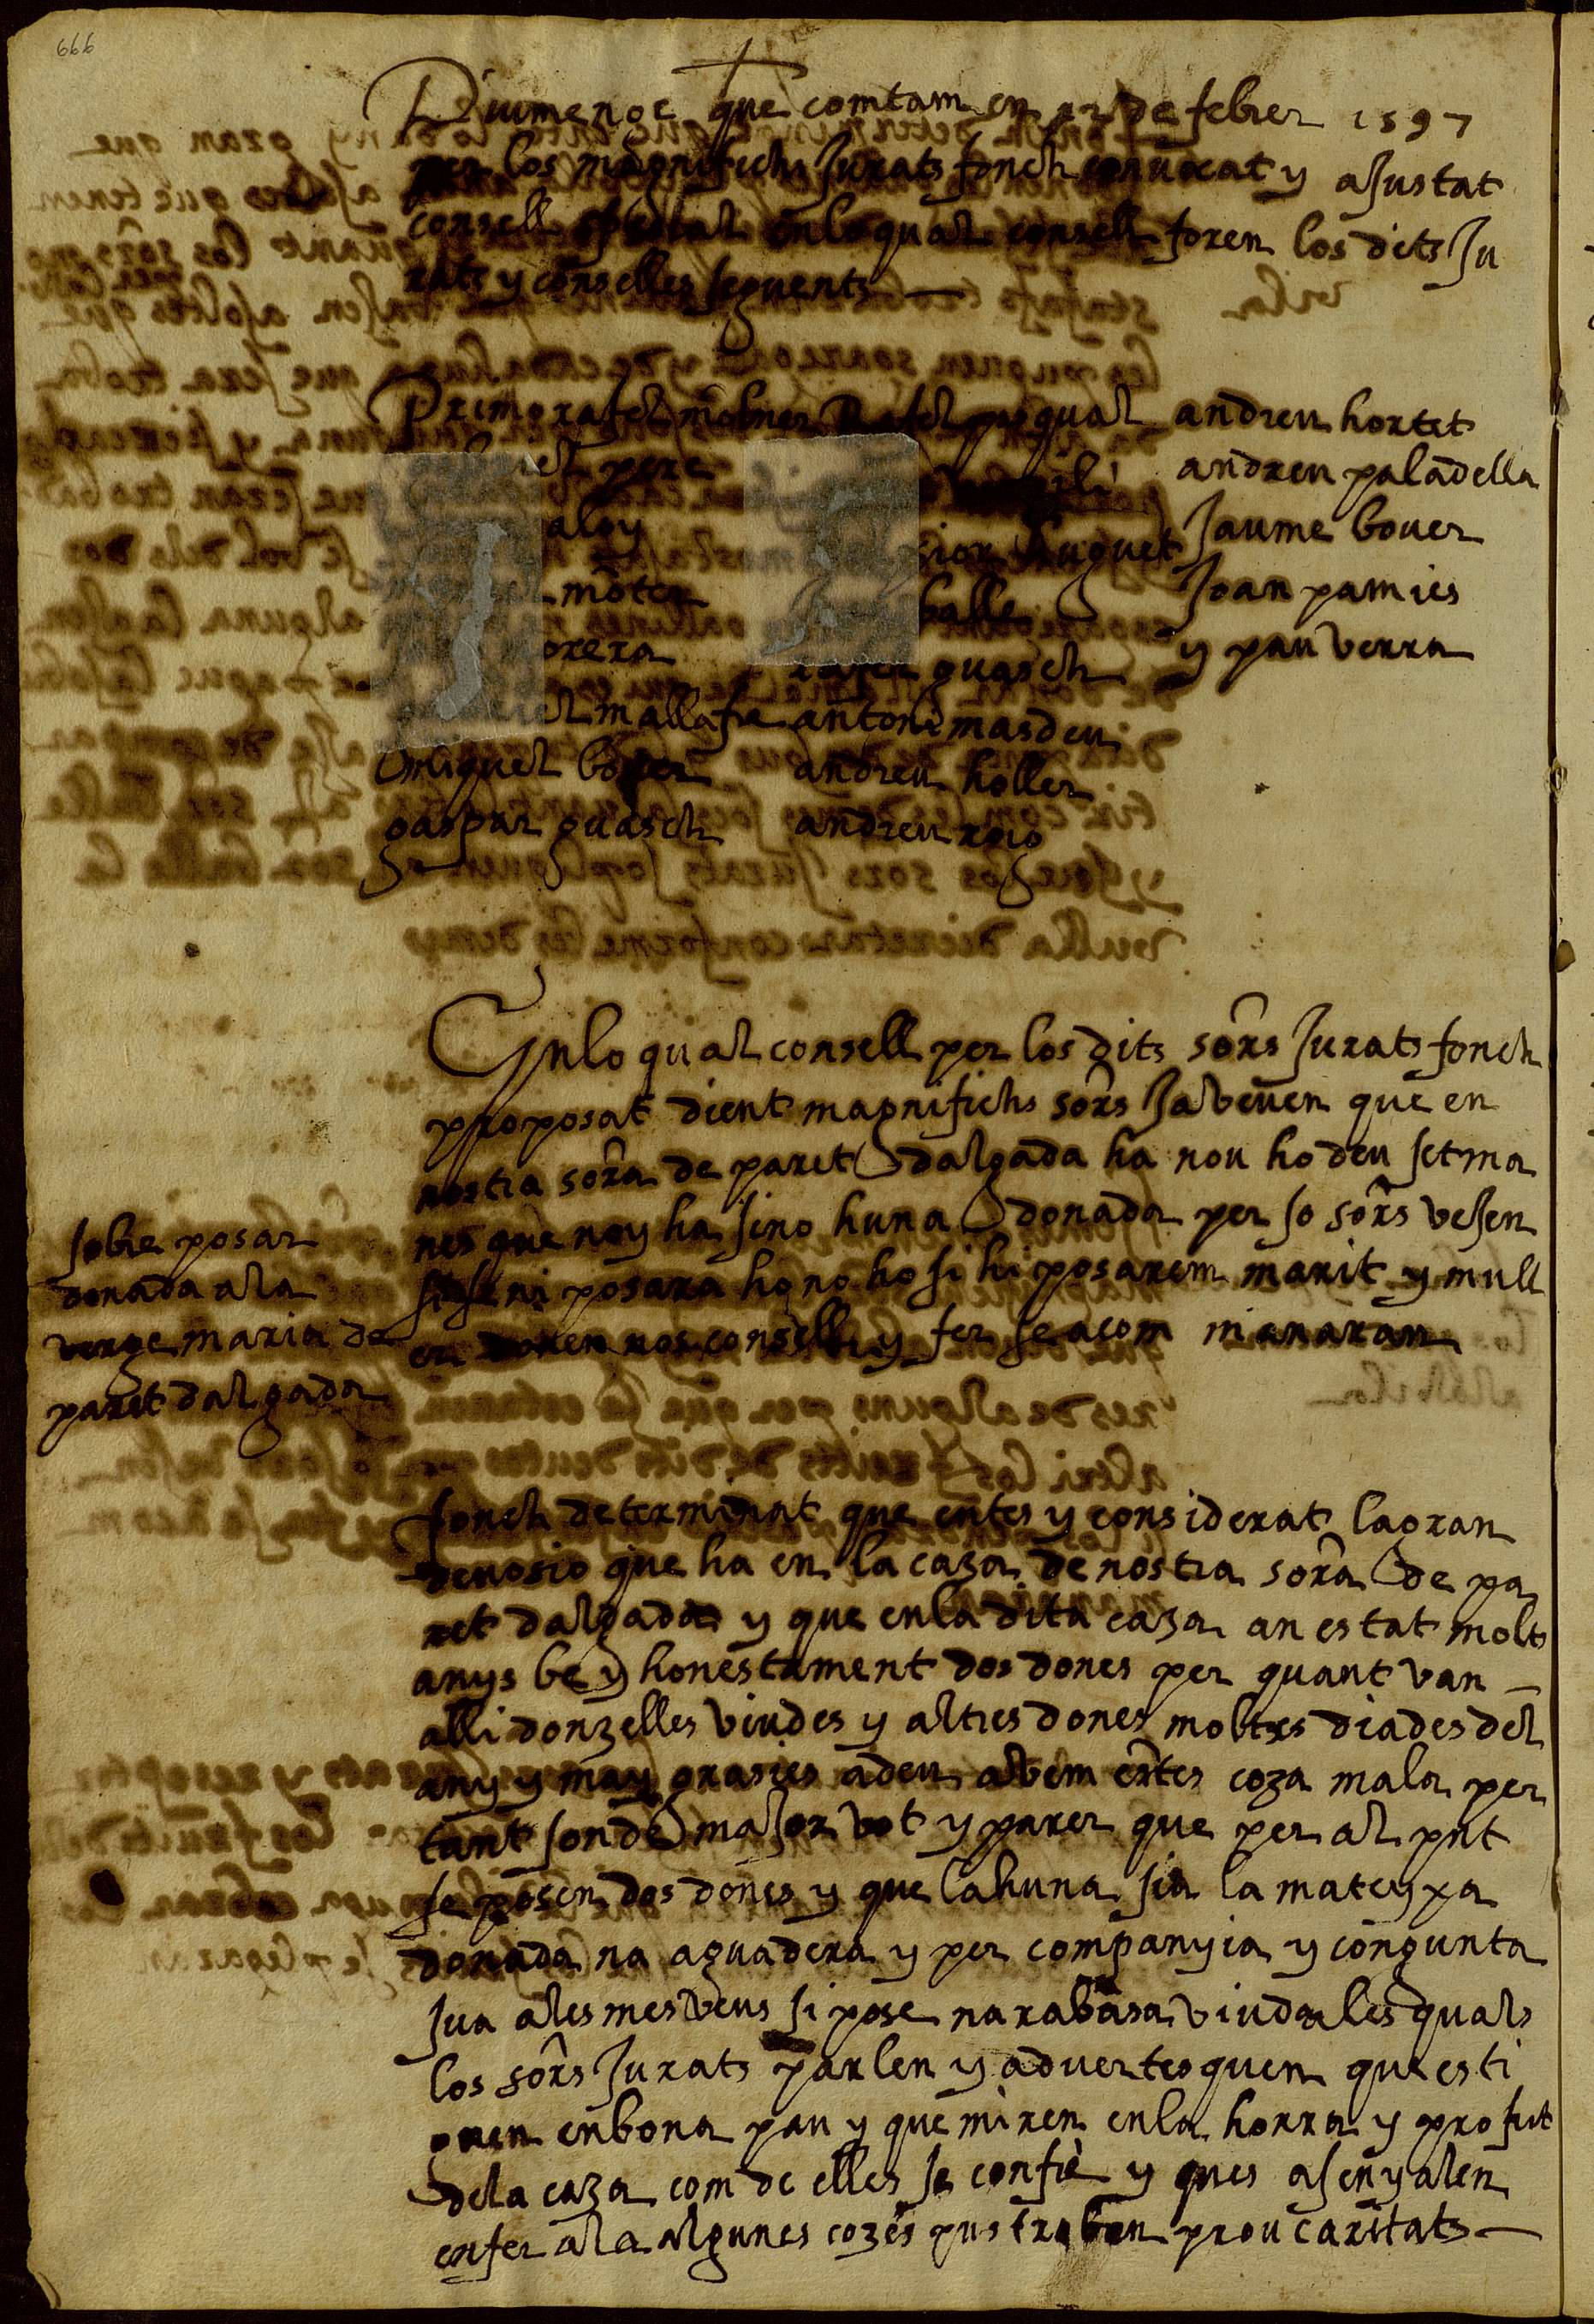 666
Diumenge que comtam en de febrer 1597
per los magnifichs Jurats fonch convocat y ajustat
consell en lo qual consell foren los dits Ju
rats y consellers seguents
Primo rafel moliner Rafel pasqual
pere
aloy
huguet
môter
balle
orera
guasch
mallafre antoni masdeu
miquel bover andreu holler
gaspar guasch andreu roig
andreu hortet
andreu paladella
Jaume bover
Joan pamies
y pau verra
En lo qual consell per los dits sors Jurats fonch
proposat dient magnifichs sors Ja veuen que en
nostra sora de paret dalgada ha nou ho deu setma
nes que noy ha sino huna donada per so sors vejen
si posara ho no ho si hi posarem marit y mull
er donen nos consell y fer se a com manaran
sobre posar
donada a la
verge maria de
paret dalgada
fonch determinat que entes y considerat la gran
devosio que ha en la caza de nostra sora de pa
ret dalgada y que en la dita caza an estat molts
anys be y honestament dos dones per quant van
alli donzelles viudes y altres dones moltes diades del
any y may grasies a deu abem entes coza mala per
tant son de major vot y parer que per al pnt
se posen dos dones y que la huna sia la mateyxa
donada na aguadera y per companyia y congunta
sua a les mes veus si pose na rabasa viuda les quals
los sors Jurats parlen y advertesquen que esti
guen en bona pau y que miren en la honra y profit
de la caza com de elles se confie y ques asenyalen
en fer ala algunes cozes pus troben prou caritats